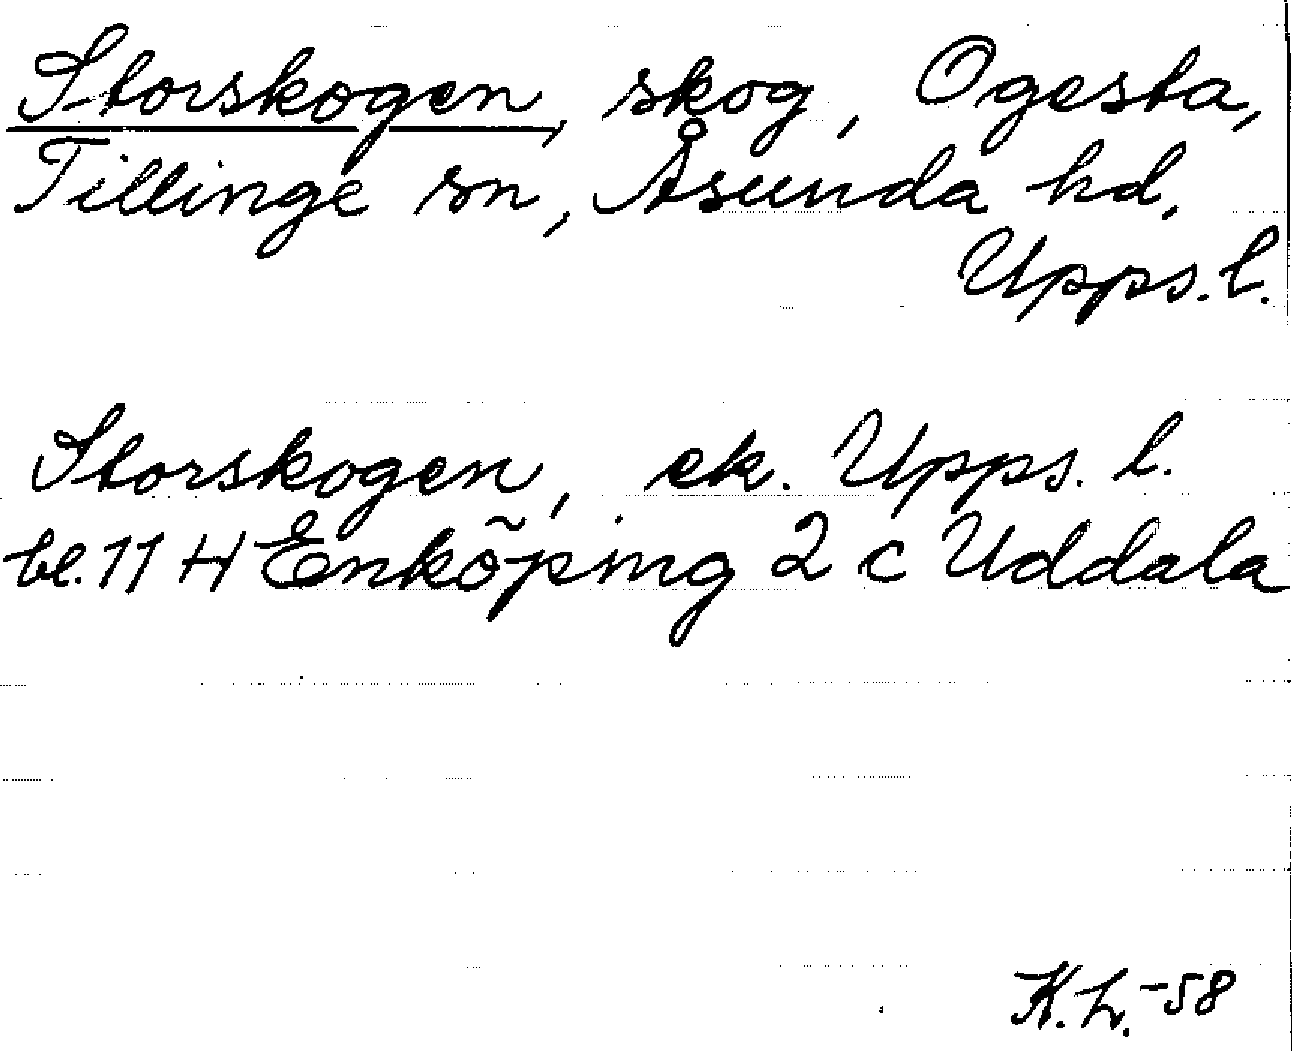 Storskogen, skog, Ogesta,
Tillinge sn, Åsunda hd.
Upps. l.
Storskogen, ek. Upps. l.
bl. 11 H Enköping 2 c Uddala
K. L. -58